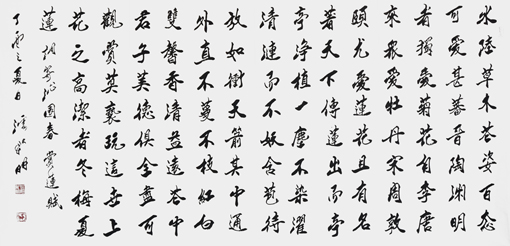 水陸草木花姿百态
可愛甚蕃晋陶渊明
者獨愛菊花自李唐
來衆愛牡丹宋周敦
頤尤愛蓮花且有名
著天下傳蓮出而亭
亭净植一塵不染濯
清漣而不妖含苞待
放如樹天箭其中通
外直不蔓不枝紅白
雙馨香清益遠花中
君子美德俱全盡可
觀賞英褒玩這世上
花之高潔者冬梅夏
蓮 調寄沁園春 賞蓮賦
丁酉之夏日 明